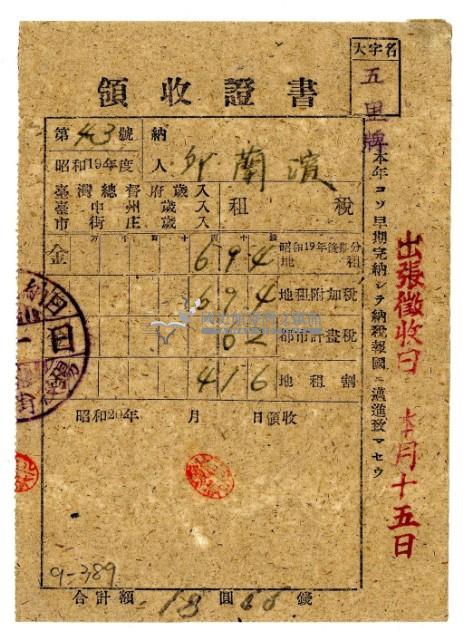 大字名
五里牌
領收證書
第43號
納人 邱蘭濱
昭和19年度
臺灣總督府歲入
臺中州歲入
市街庄歲入
租稅
金 694 昭和19年後期分地租
694 地租附加稅
62 都市計畫稅
416 地租割
昭和20年 月 日領收
合計額 18圓66錢
9-389
本年コソ早期完納シテ納稅報國ニ邁進致マセウ
出張徵收日 十月十五日